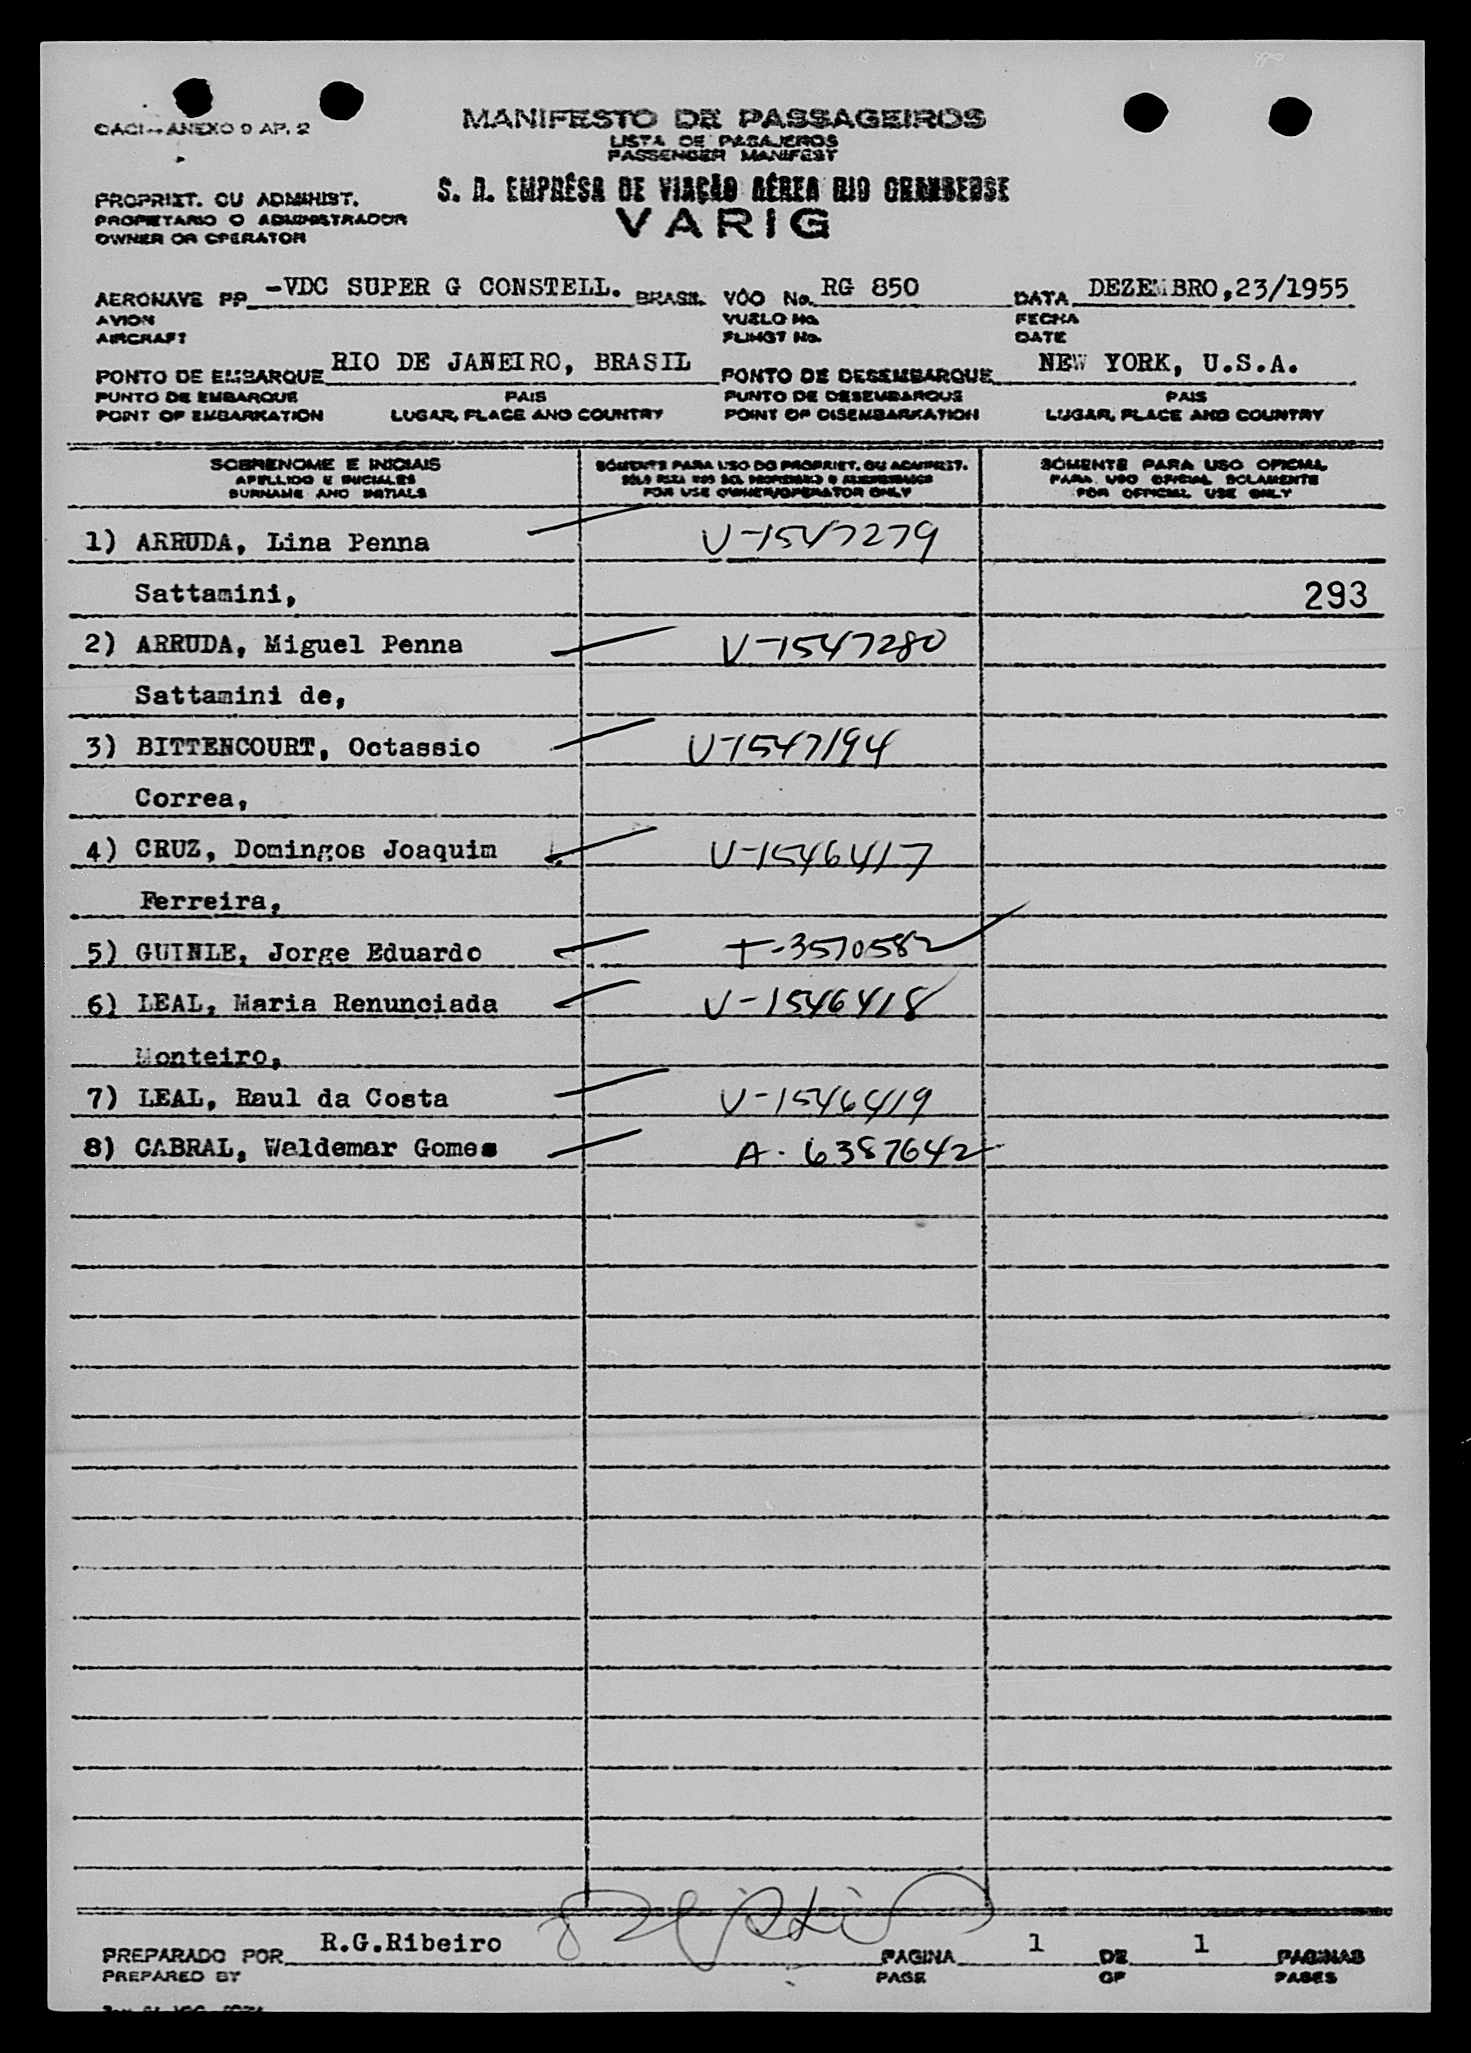 OACI - ANEXO 9 AP. 2
MANIFESTO DE PASSAGEIROS
LISTA DE PASAJEROS
PASSENGER MANIFEST
PROPRIET. OU ADMINIST.
PROPIETARIO O ADMINISTRADOR
OWNER OR OPERATOR
S. A. EMPRÊSA DE VIAÇÃO AÉREA RIO GRANDENSE
VARIG
AERONAVE PP -VDC SUPER G CONSTELL. BRASIL VÔO No. RG 850 DATA DEZEMBRO,23/1955
AVION VUELO No. FECHA
AIRCRAFT FLIHGT No. DATE
PONTO DE EMBARQUE RIO DE JANEIRO, BRASIL PONTO DE DESEMBARQUE NEW YORK, U.S.A.
PUNTO DE EMBARQUE PAIS PUNTO DE DESEMBARQUE PAIS
POINT OF EMBARKATION LUGAR, PLACE AND COUNTRY POINT OF DISEMBARKATION LUGAR, PLACE AND COUNTRY
SOBRENOME E INICIAIS SÓMENTE PARA USO DO PROPRIET. OU ADMINIST. SÓMENTE PARA USO OFICIAL
APELLIDO E INICIALES SOLO PARA USO DEL PROPIETARIO O ADMINISTRADOR PARA USO OFICIAL SOLAMENTE
SURNAME AND INITIALS FOR USE OWNER/OPERATOR ONLY FOR OFFICIAL USE ONLY
1) ARRUDA, Lina Penna V-1547279
Sattamini, 293
2) ARRUDA, Miguel Penna V-1547280
Sattamini de,
3) BITTENCOURT, Octassio V-1547194
Correa,
4) CRUZ, Domingos Joaquim V-1546417
Ferreira,
5) GUINLE, Jorge Eduardo T-3570582
6) LEAL, Maria Renunciada V-1546418
Monteiro,
7) LEAL, Raul da Costa V-1546419
8) CABRAL, Waldemar Gomes A-6387642
PREPARADO POR R.G.Ribeiro PAGINA 1 DE 1 PAGINAS
PREPARED BY PAGE OF PAGES